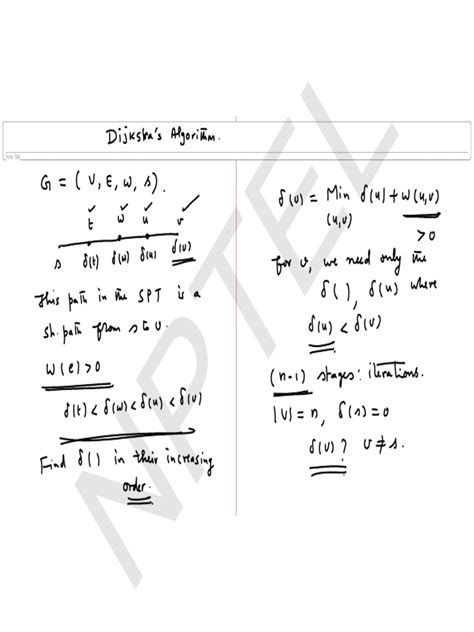 Dijkstra's Algorithm.
G = (V, E, W, s).
t w u v
s δ(t) δ(w) δ(u) δ(v)
This path in the SPT is a
sh. path from s to v.
W(e) > 0
δ(t) < δ(w) < δ(u) < δ(v)
Find δ() in their increasing
order.
δ(v) = Min δ(u) + W(u,v)
(u,v)
> 0
for v, we need only the
δ( ), δ(u) where
δ(u) < δ(v)
(n-1) stages: iterations.
|V| = n, δ(s) = 0
δ(v)? v ≠ s.
NPTEL